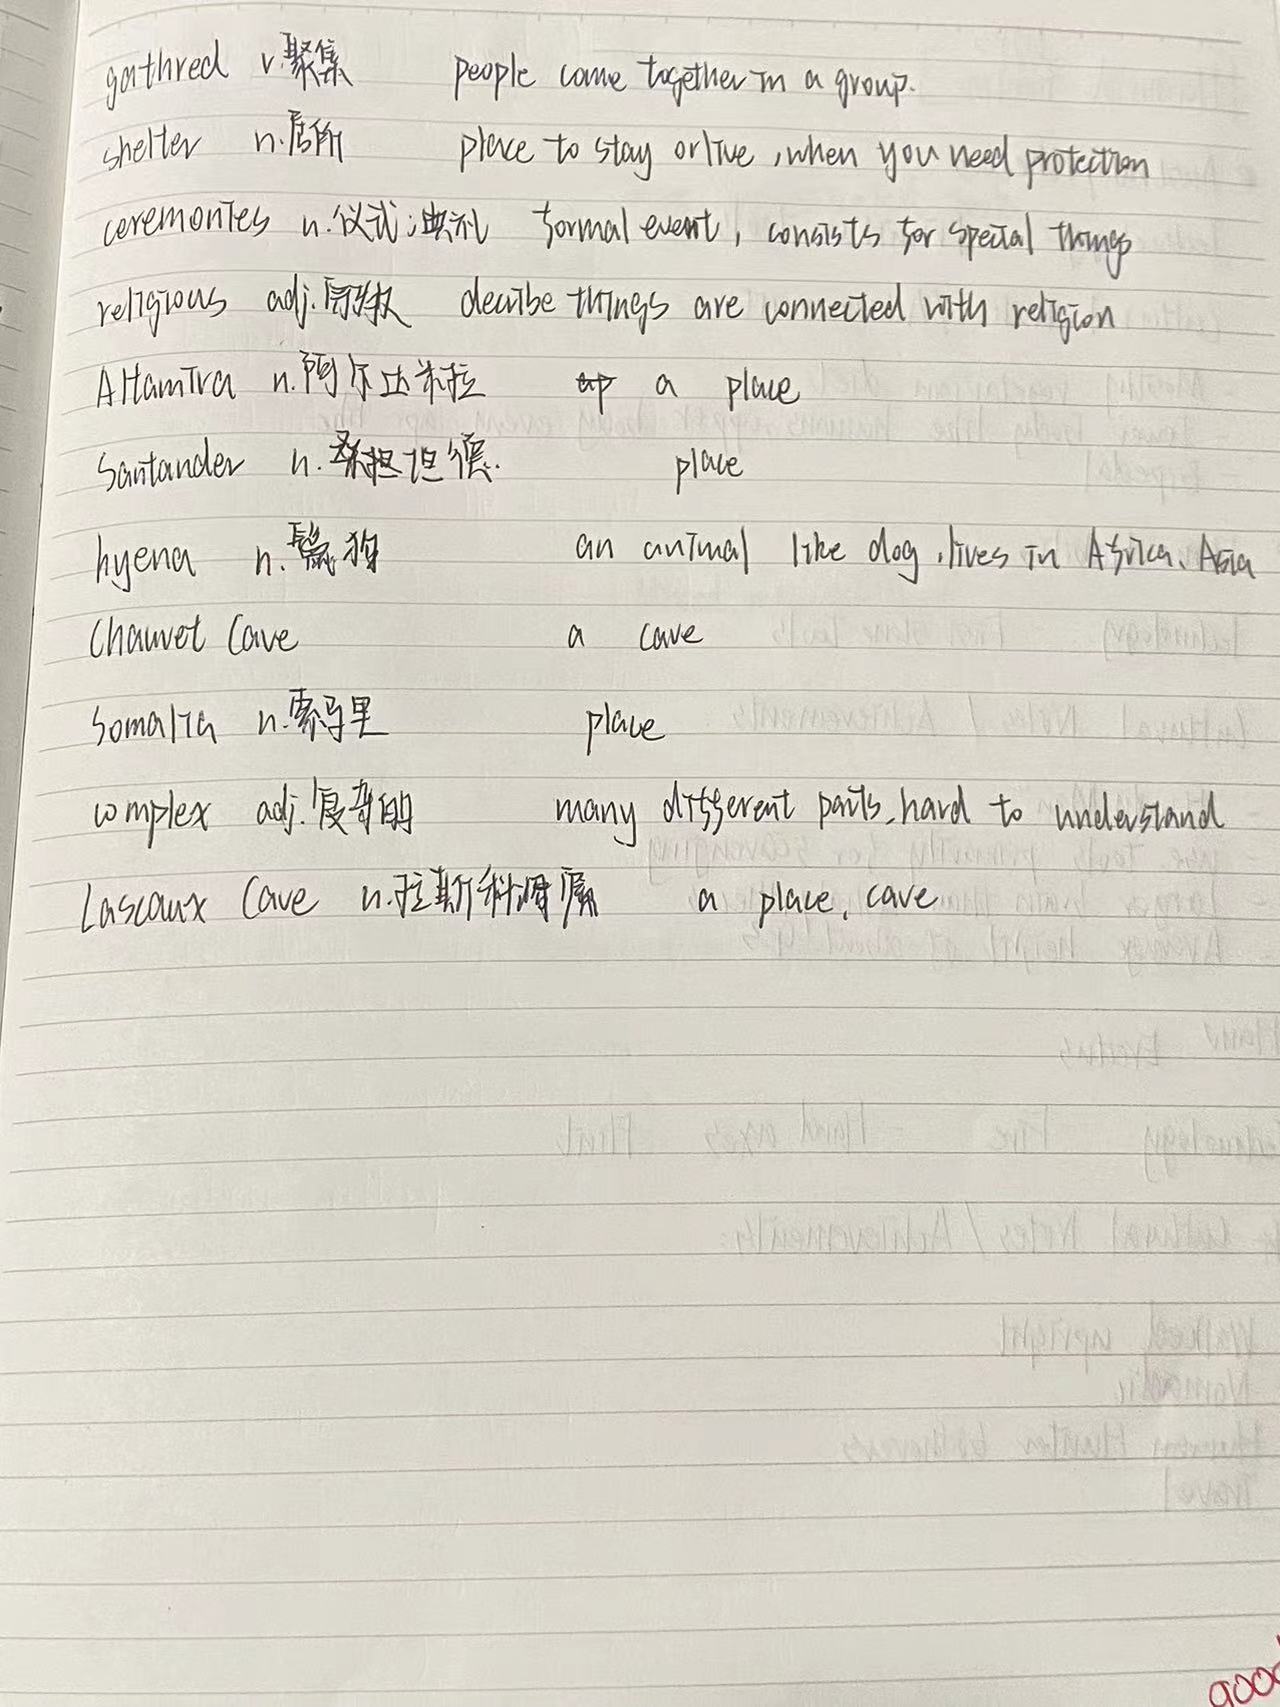 gathred v.聚集 people come together in a group.
shelter n.居所 place to stay or live, when you need protection
ceremonies n.仪式;典礼 formal event, consists for special things
religious adj.宗教 decribe things are connected with religion
Altamira n.阿尔达米拉 a place
Santander n.桑坦德. place
hyena n.鬣狗 an animal like dog, lives in Africa、Asia
Chauvet Cave a cave
Somalia n.索马里 place
complex adj.复杂的 many different parts, hard to understand
Lascaux Cave n.拉斯科洞窟 a place, cave
good